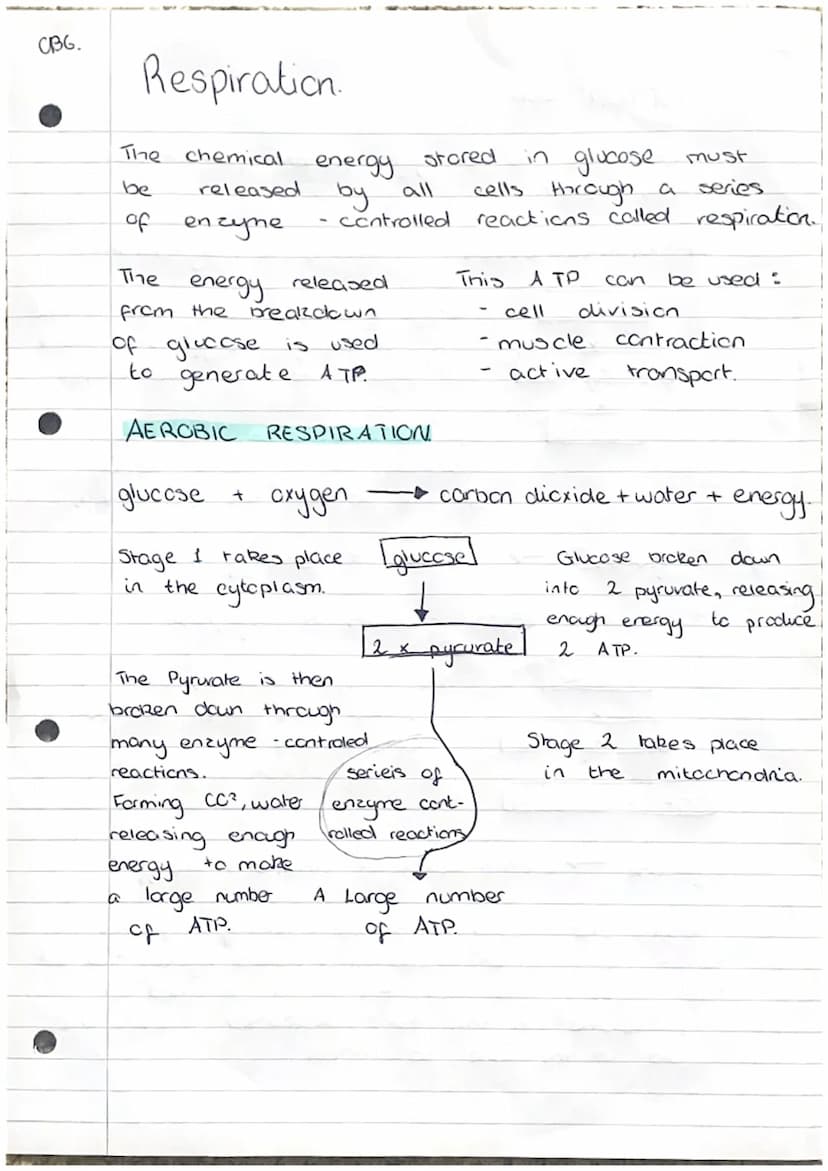 CB6.
Respiration.
The chemical energy stored in glucose must
be released by all cells through a series
of enzyme - controlled reactions called respiration.
The energy released
from the breakdown
of glucose is used
to generate ATP.
This ATP can be used :
- cell division
- muscle contraction
- active transport.
AEROBIC RESPIRATION
glucose + oxygen → carbon dioxide + water + energy.
Stage 1 takes place
in the cytoplasm.
glucose
2 x pyruvate
Glucose broken down
into 2 pyruvate, releasing
enough energy to produce
2 ATP.
The Pyruvate is then
broken down through
many enzyme - controled
reactions.
Forming CO², water
releasing enough
energy to make
a large number
of ATP.
serieis of
enzyme cont-
rolled reactions
A Large number
of ATP.
Stage 2 takes place
in the mitochondria.